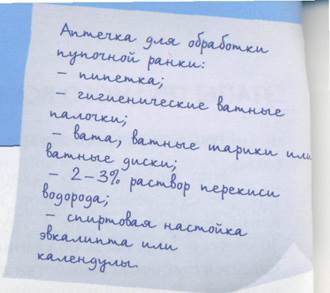 Аптечка для обработки
пупочной ранки:
– пипетка;
– гигиенические ватные
палочки;
– вата, ватные шарики или
ватные диски;
– 2–3% раствор перекиси
водорода;
– спиртовая настойка
эвкалипта или
календулы.